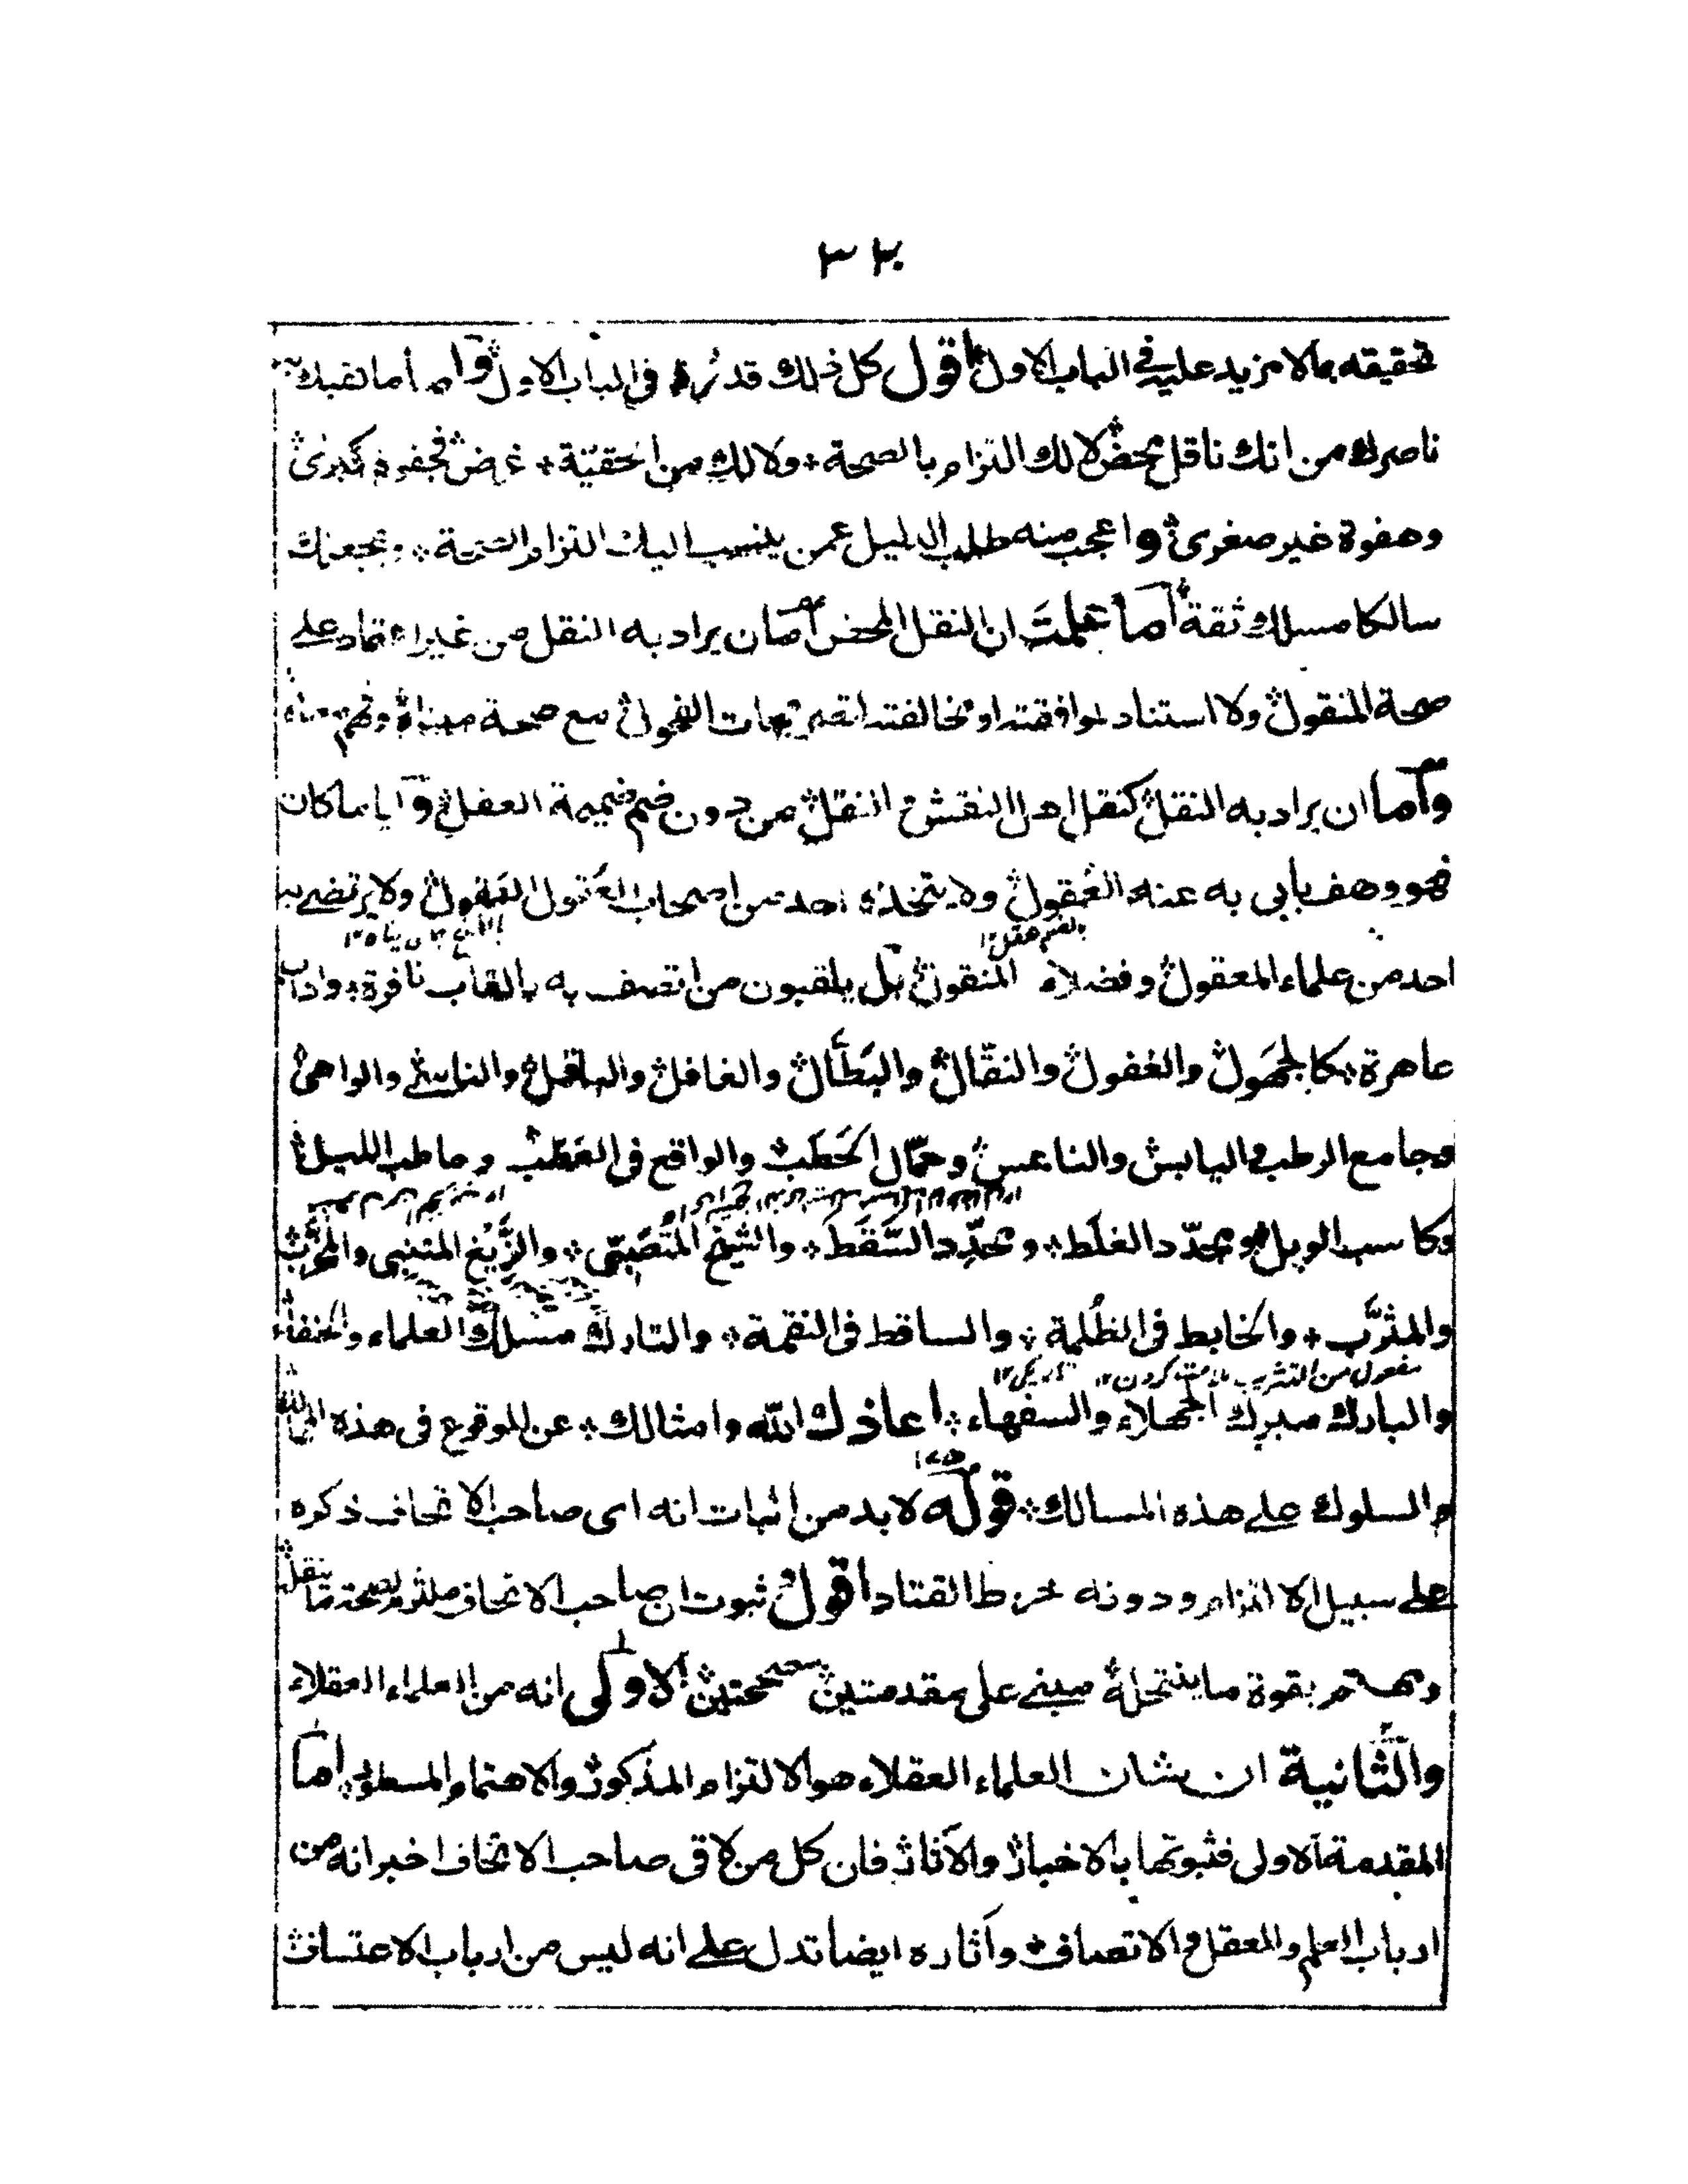 ٣٢
تحقيقه بما لا مزيد عليه في الباب الاول اقول كل ذلك قد رُدّ في الباب الاول واما
ناصرك من انك ناقل محض لا لك التزام بالصحة ولا لك من الحقيّة غرض فجفوة كبرى
وهفوة غير صغرى واعجب منه طلب الدليل عمن ينسب اليك التزام الصحة ويجعلك
سالكا مسلك ثقة أما علمت ان النقل المحض اما ان يراد به النقل من غير اعتماد على
صحة المنقول ولا استناد لموافقته او مخالفته لتصريحات الفحول مع صحة مبناه وفهم معناه
واما ان يراد به النقل كنقل اهل النقش النقل من دون ضم ضميمة العقل وايا ما كان
فهو وصف يابى به عنه العُقول ولا يتخذه احد من اصحاب العَقول ولا يرتضى به
بالضم عقل ١٢
احد من علماء المعقول وفضلاء المنقول بل يلقبون من اتصف به بالقاب نافرة واداب
عاهرة كالجَهول والغفول والنقّال والبَطَّال والغافل والباقل والناسى والواهى
وجامع الرطب واليابس والناعس وحمّال الحَطَب والواقع فى العَطَب وحاطب الليل
وكاسب الويل ومجدّد الغلَط ومحدِّد السَّقَط والشيخ المُتَصَبّى والزَّيْغ المتنبى والمخرّب
والمثرَّب والخابط فى الظُلمة والساقط فى النقمة والتارك مسلك العلماء والحنفاء
مفعول من التثريب ملامت كردن ١٢ تاريكى ١٢
والبارك مبرك الجهلاء والسفهاء اعاذك الله وامثالك عن الوقوع فى هذه المهالك
والسلوك على هذه المسالك قوله لا بد من اثبات انه اى صاحب الاتحاف ذكره
على سبيل الالتزام ودونه خرط القتاد اقول ثبوت ان صاحب الاتحاف ملتزم لصحة ما ينقل
ومهتم بقوة ما ينتحله مبنى على مقدمتين صحيحتين الاولى انه من العلماء العقلاء
والثانية ان شان العلماء العقلاء هو الالتزام المذكور والاهتمام المسطور اما
المقدمة الاولى فثبوتها بالاخبار والآثار فان كل من لاقى صاحب الاتحاف اخبر انه من
ارباب العلم والعقل والاتصاف وآثاره ايضا تدل على انه ليس من ارباب الاعتساف